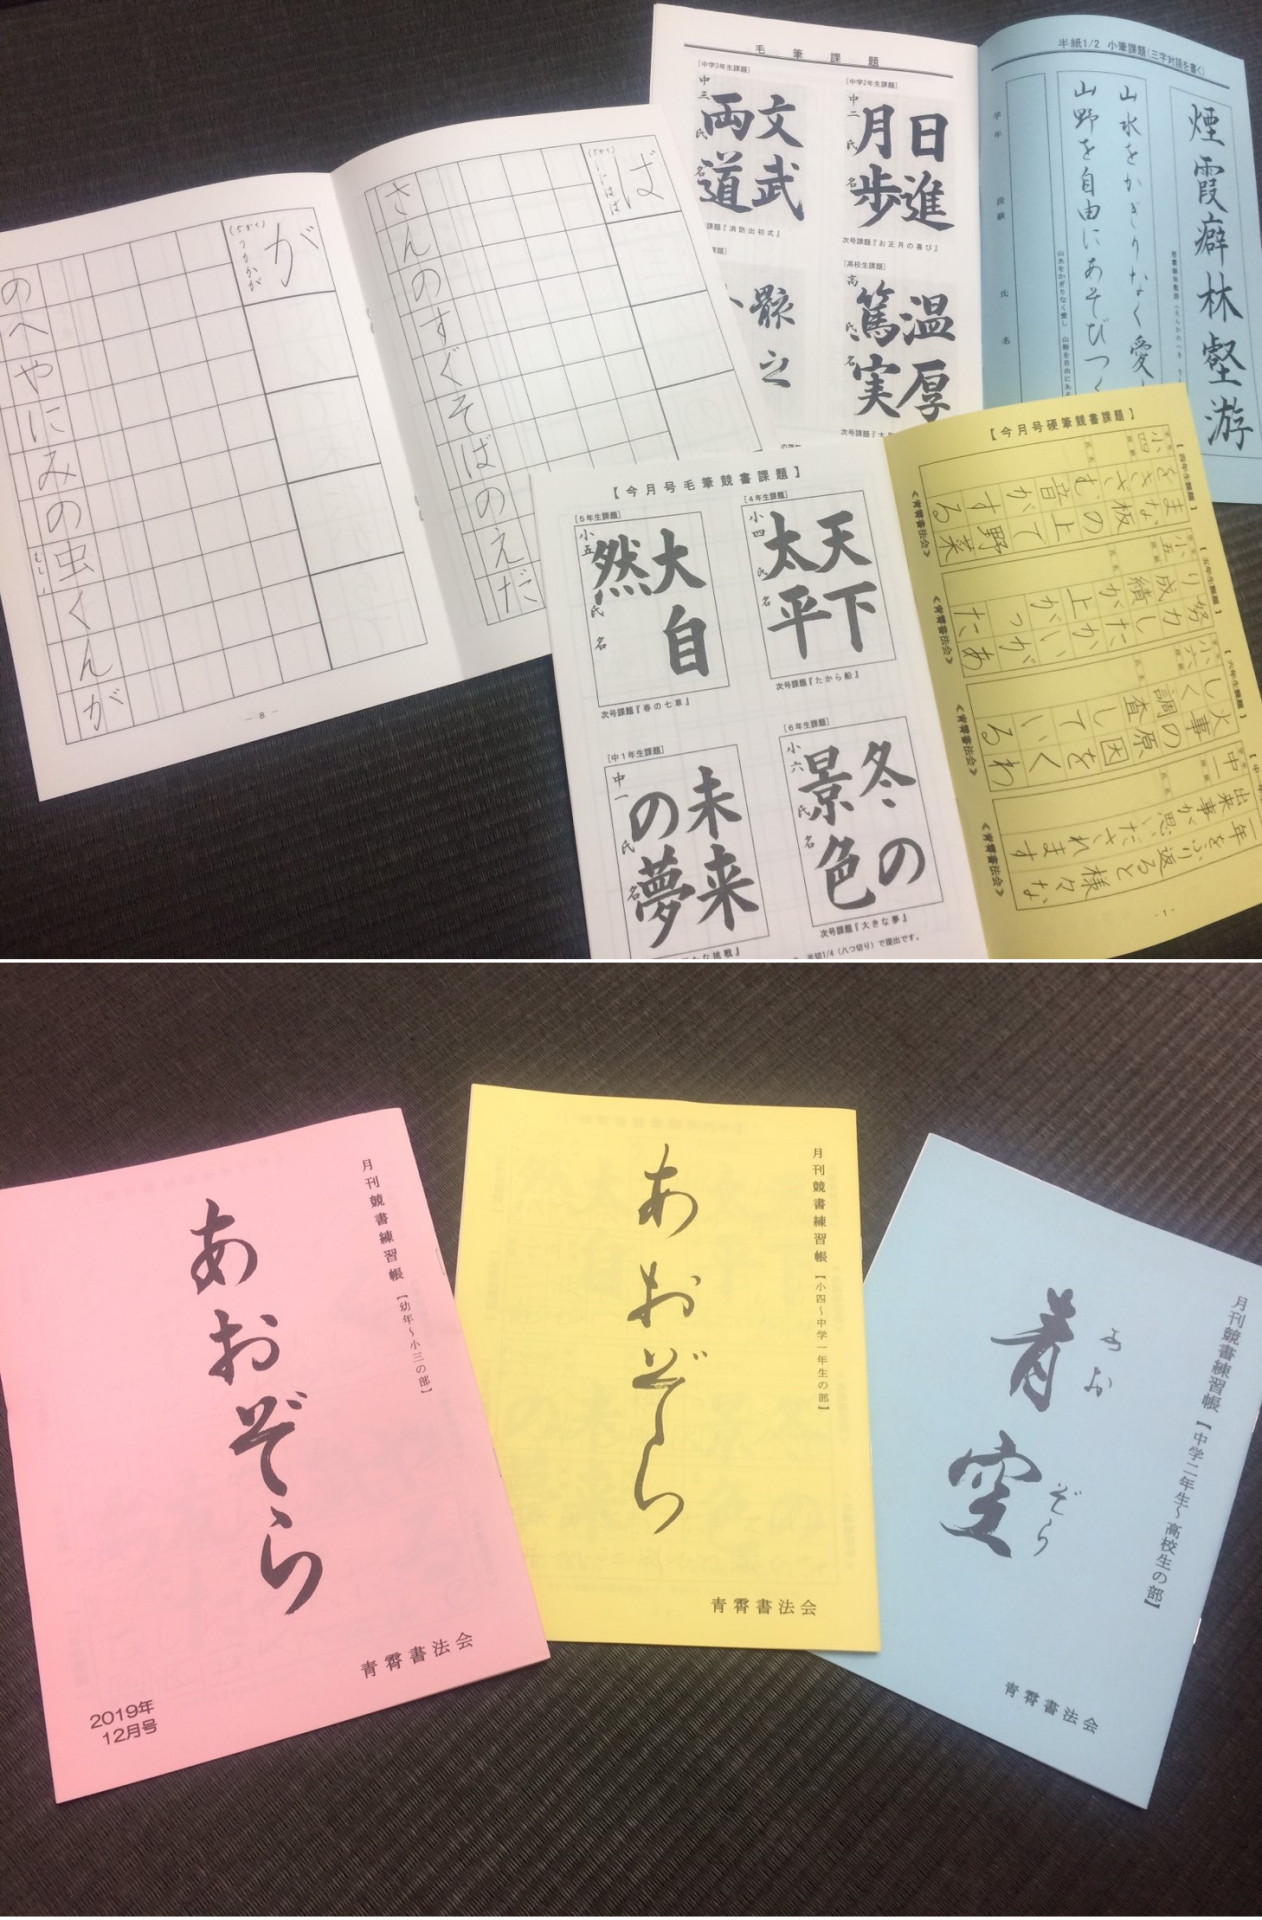 ば
さんのすぐそばのえだ
が
のへやにみの虫くんが
－8－
毛筆課題
[中学3年生課題]
中三 氏名
文武
両道
課題『消防出初式』
[中学2年生課題]
中二 氏名
日進
月歩
次号課題『お正月の喜び』
[高校生課題]
高 氏名
温厚
篤実
半紙1/2 小筆課題(三字対語を書く)
煙霞癖林壑游
山水をかぎりなく愛
山野を自由にあそびつく
学年
段級
氏名
【今月号毛筆競書課題】
[4年生課題]
小四 氏名
天下
太平
次号課題『たから船』
[5年生課題]
小五 氏名
大自
然
次号課題『春の七草』
[6年生課題]
小六 氏名
冬の
景色
次号課題『大きな夢』
[中1年生課題]
中一 氏名
未来
の夢
半切1/4(八つ切り)で提出です。
【今月号硬筆競書課題】
小四
まな板の上で野菜
をきざむ音がする
小五
努力したかいがあ
り成績が上がった
小六
火事の原因をくわ
しく調査している
中一
一年をふり返ると様々な
出来事が思いだされます
－1－
月刊競書練習帳【幼年～小三の部】
あおぞら
青霄書法会
2019年
12月号
月刊競書練習帳【小四～中学一年生の部】
あおぞら
青霄書法会
月刊競書練習帳【中学二年生～高校生の部】
あお
ぞら
青空
青霄書法会